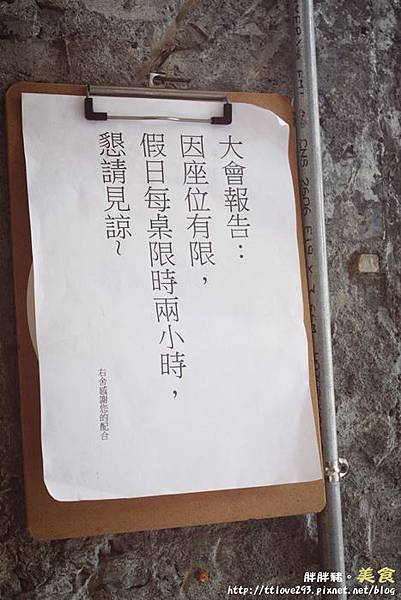 大會報告：
因座位有限，
假日每桌限時兩小時，
懇請見諒~
右舍感謝您的配合
CNS 2606 E19
胖胖豬。美食
http://ttlove293.pixnet.net/blog